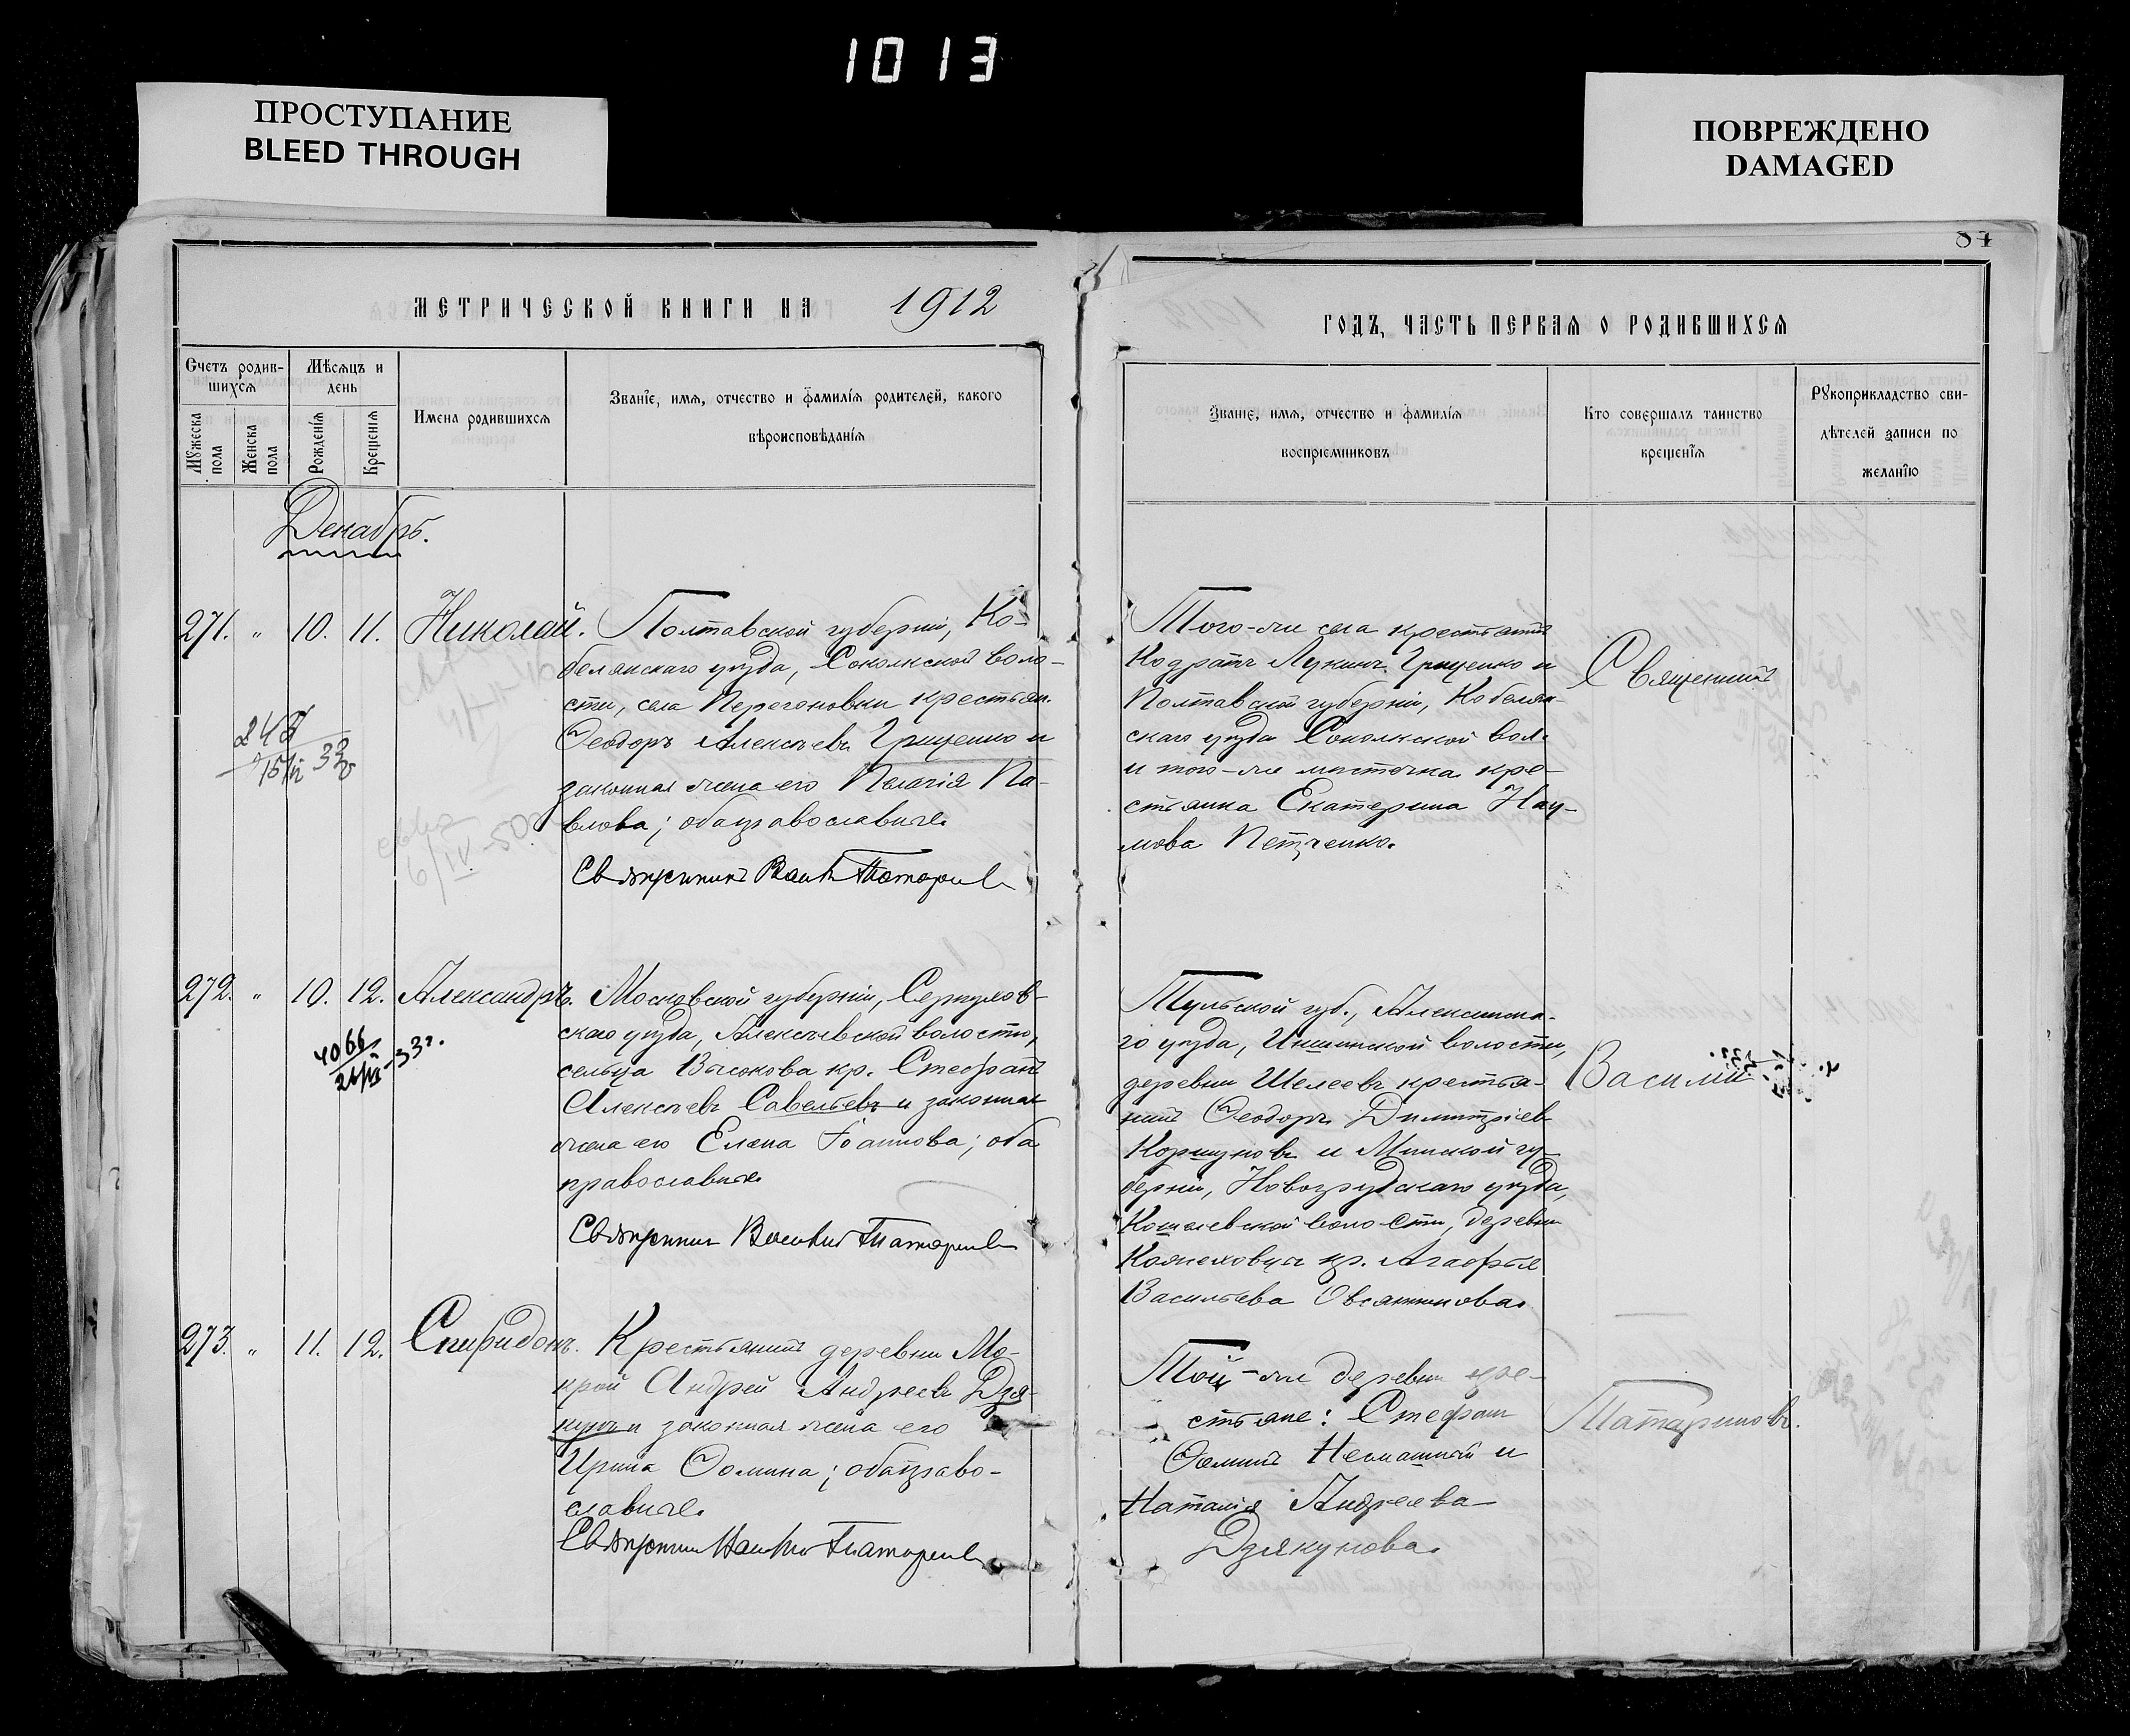 1013
ПРОСТУПАНИЕ
BLEED THROUGH
ПОВРЕЖДЕНО
DAMAGED
87
МЕТРИЧЕСКОЙ КНИГИ НА 1912
ГОДЪ, ЧАСТЬ ПЕРВАЯ О РОДИВШИХСЯ
Счетъ родив-
шихся
Мужеска
пола
Женска
пола
Мѣсяцъ и
день
Рожденія
Крещенія
Имена родившихся
Званіе, имя, отчество и фамилія родителей, какого
вѣроисповѣданія
Званіе, имя, отчество и фамилія
воспріемниковъ
Кто совершалъ таинство
крещенія
Рукоприкладство сви-
дѣтелей записи по
желанію
Декабрь.
271. " 10. 11. Николай.
Полтавской губерніи, Ко-
белякскаго уѣзда, Соколкской воло-
сти, села Перегоновки крестьян.
Ѳеодоръ Алексѣевъ Гриценко и
законная жена его Пелагія Па-
влова; оба православные.
Священникъ Василій Татаринов
Того-же села крестьянинъ
Кодратъ Лукинъ Гриценко и
Полтавской губерніи, Кобеляк-
скаго уѣзда Соколкской вол.
и того-же мѣстечка кре-
стьянка Екатерина Нау-
мова Петренко.
272. " 10. 12. Александръ.
4066
33г.
Московской губерніи, Серпухов-
скаго уѣзда, Алексѣевской волости,
сельца Высокова кр. Стефанъ
Алексѣевъ Савельевъ и законная
жена его Елена Іоаннова; оба
православные.
Священник Василий Татаринов
Тульской губ., Алексинска-
го уѣзда, волости,
деревни Шелеевъ крестья-
нинъ Ѳеодоръ Димитріев
Коршуновъ и Минской гу-
берніи, Новогрудскаго уѣзда,
Кошелевской волости, деревни
кр. Агафья
Васильева Овсянникова.
273. " 11. 12. Спиридонъ.
Крестьянинъ деревни Мо-
крой Андрей Андреевъ Дзя-
кунъ и законная жена его
Ирина Ѳомина; оба право-
славные.
Священник Василий Татаринов
Той-же деревни кре-
стьяне: Стефан
Ѳоминъ и
Наталія Андреева
Дзякунова.
Священникъ
Василій
Татариновъ.